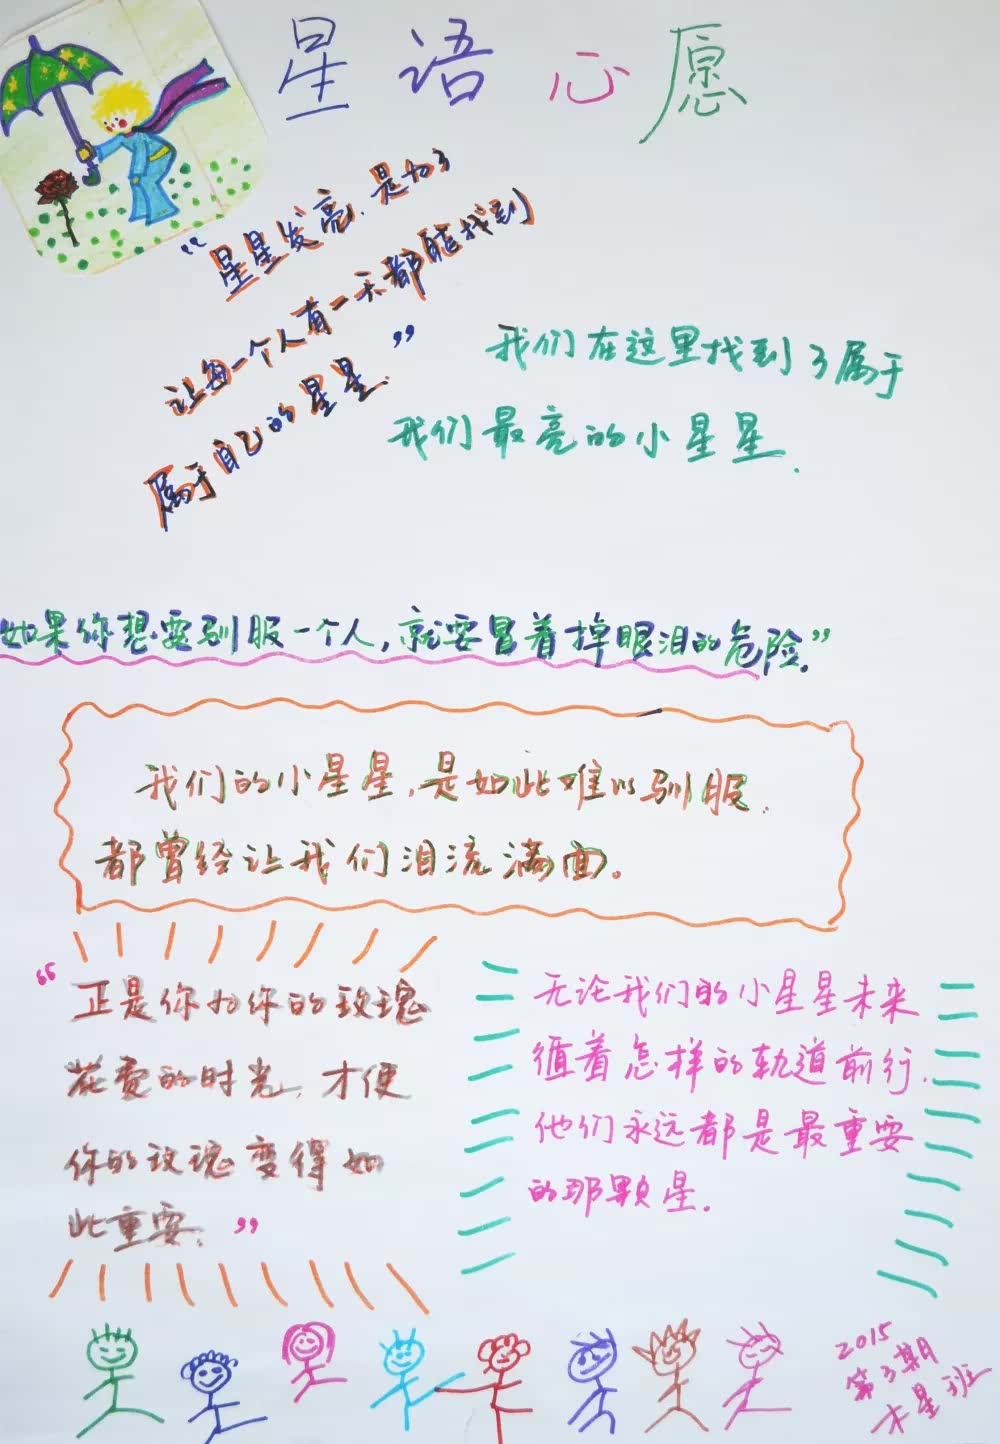 星语心愿
“星星发亮.是为了
让每一个人有一天都能找到
属于自己的星星.”
我们在这里找到了属于
我们最亮的小星星.
如果你想要驯服一个人,就要冒着掉眼泪的危险.”
我们的小星星,是如此难以驯服.
都曾经让我们泪流满面。
“正是你为你的玫瑰
花费的时光,才使
你的玫瑰变得如
此重要.”
无论我们的小星星未来
循着怎样的轨道前行.
他们永远都是最重要
的那颗星.
2015
第3期
木星班